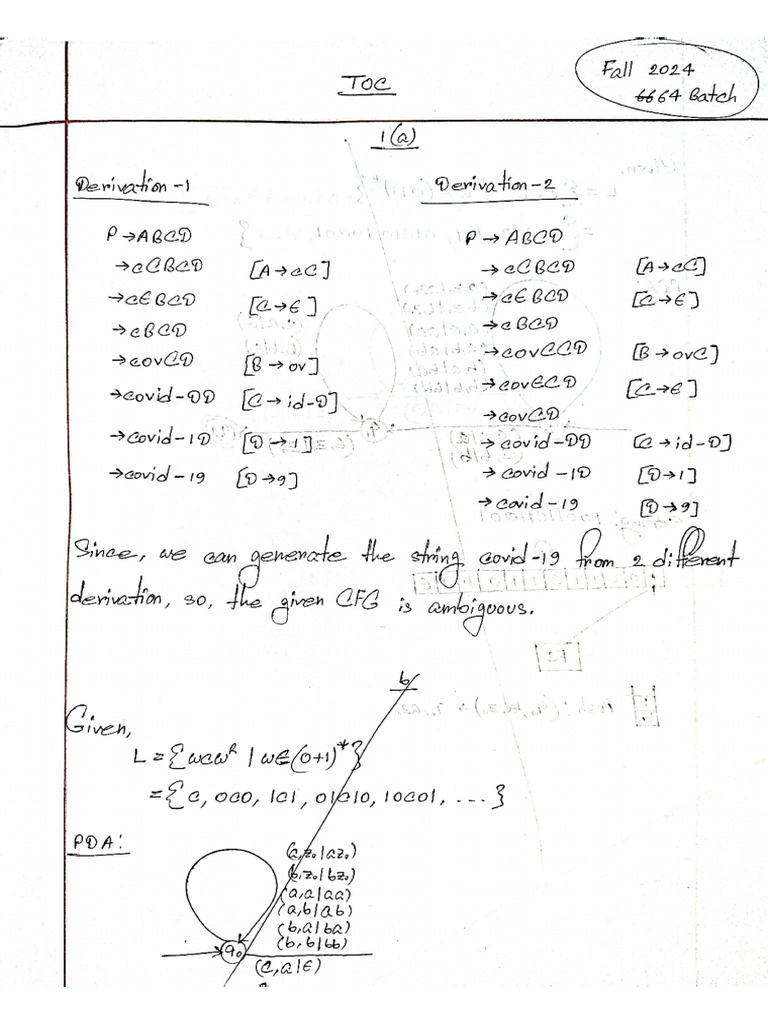 TOC
Fall 2024
64 Batch
1(a)
Derivation-1
P → ABCD
→ cCBCD [A → cC]
→ cϵBCD [C → ϵ]
→ cBCD
→ covCD [B → ov]
→ covid-DD [C → id-D]
→ covid-1D [D → 1]
→ covid-19 [D → 9]
Derivation-2
P → ABCD
→ cCBCD [A → cC]
→ cϵBCD [C → ϵ]
→ cBCD
→ covCCD [B → ovC]
→ covϵCD [C → ϵ]
→ covCD
→ covid-DD [C → id-D]
→ covid-1D [D → 1]
→ covid-19 [D → 9]
Since, we can generate the string covid-19 from 2 different
derivation, so, the given CFG is ambiguous.
b
Given,
L = {wcwᴿ | w∈(0+1)*}
= {c, 0c0, 1c1, 01c10, 10c01, ....}
PDA:
(a,z₀|az₀)
(b,z₀|bz₀)
(a,a|aa)
(a,b|ab)
(b,a|ba)
(b,b|bb)
q₀
(c,a|ϵ)